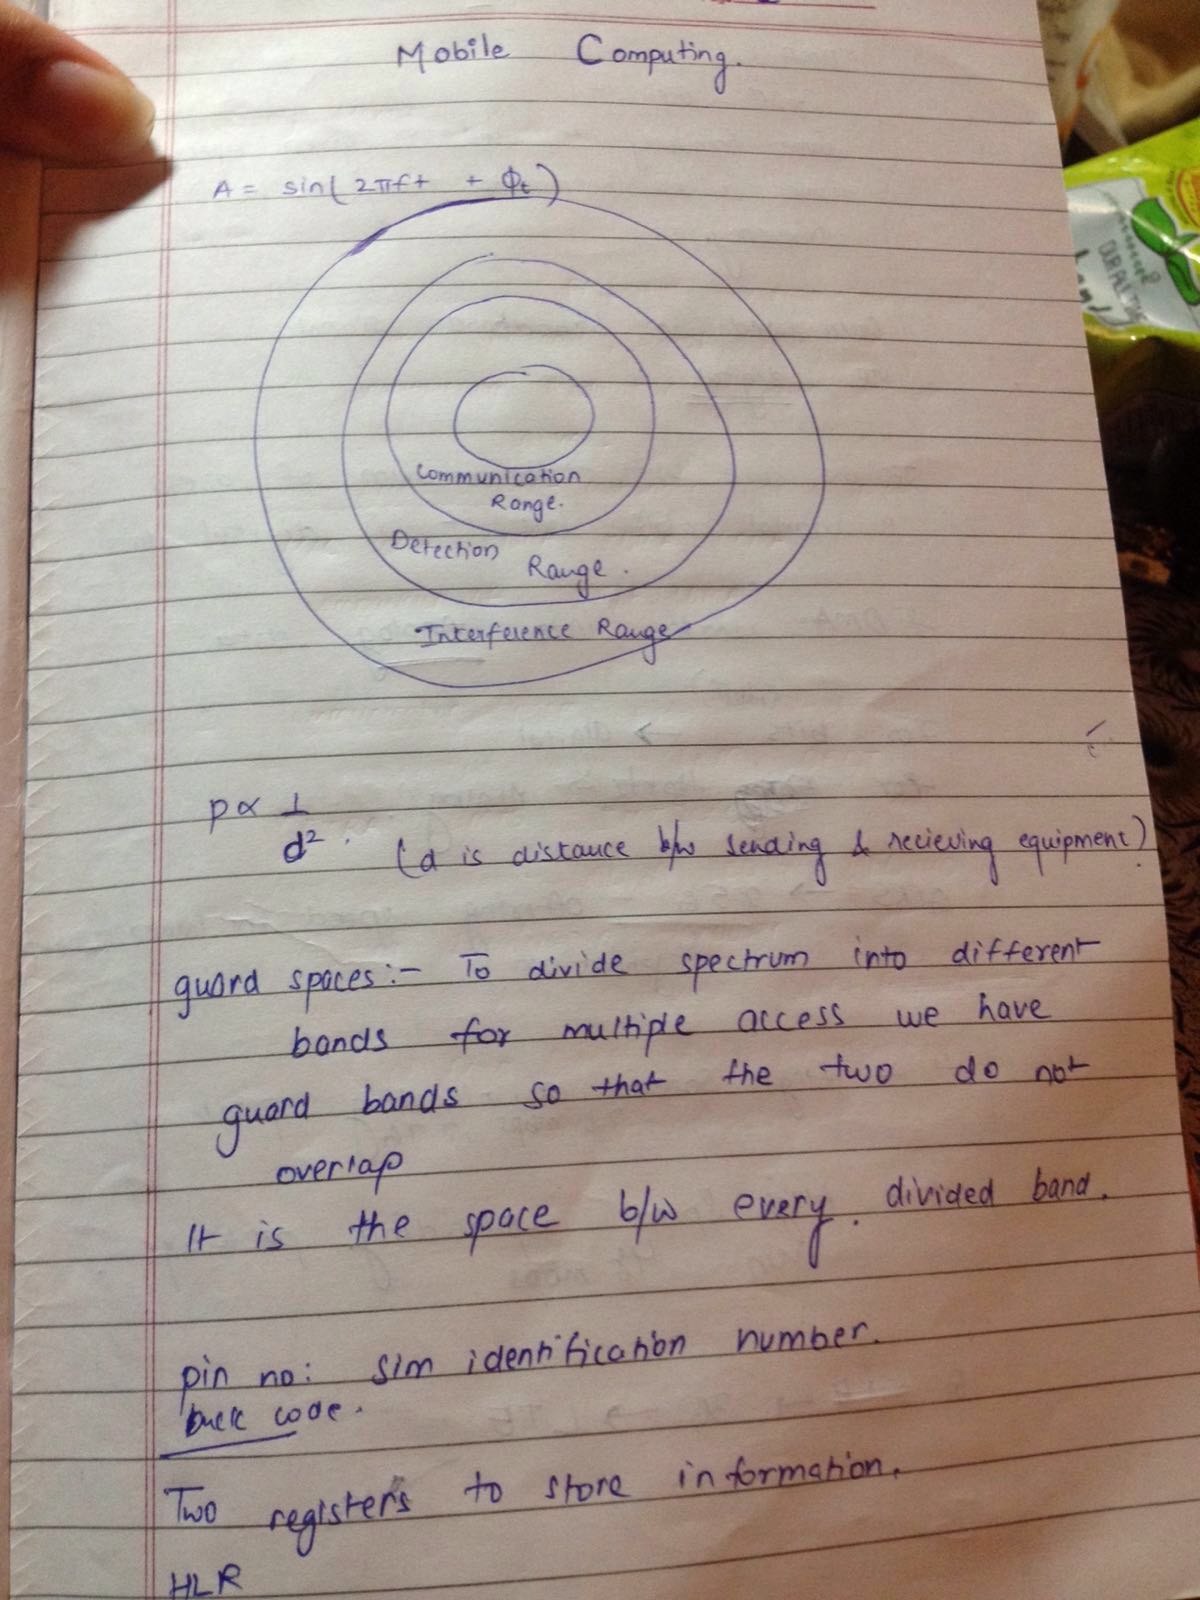 Mobile Computing.
A = sin(2πft + Φt)
Communication
Range.
Detection
Range.
Interference Range
p ∝ 1
d². (d is distance b/w sending & recieving equipment)
guard spaces:- To divide spectrum into different
bands for multiple access we have
guard bands so that the two do not
overlap
It is the space b/w every. divided band.
pin no: sim identification number.
code.
Two registers to store information.
HLR